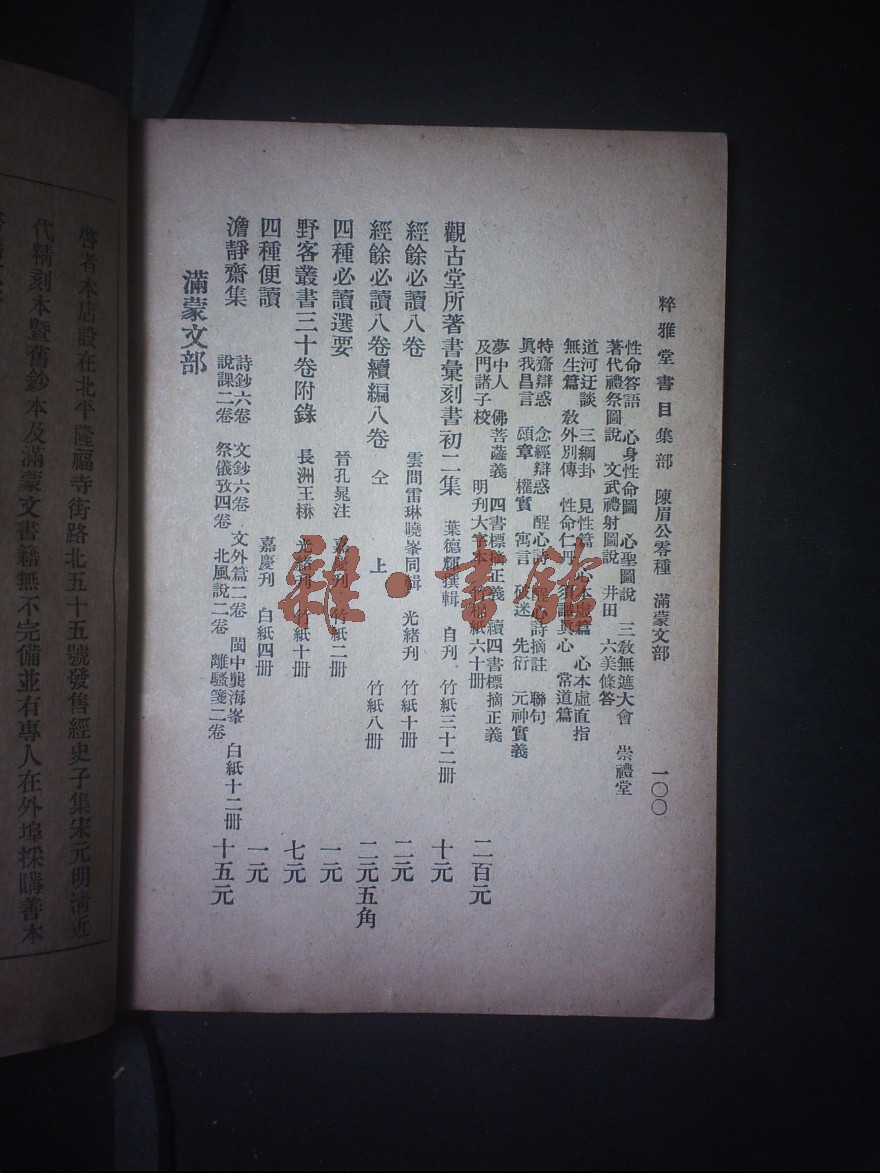 粹雅堂書目集部 陳眉公零種 滿蒙文部 一〇〇
性命答語 心身性命圖 心聖圖說 三敎無遮大會 崇禮堂
著代禮祭圖說 文武禮射圖說 井田 六美條答
道河迂談 三綱卦 見性篇 心本虛篇 心本虛直指
無生篇 敎外別傳 性命仁丹 須識真心 常道篇
特齋辯惑 念經辯惑 醒心詩 醒心詩摘註 聯句
眞我昌言 頌章 權實 寓言 破迷 先衍 元神實義
夢中人 佛菩薩義 四書標摘正義 續四書標摘正義
及門諸子校 明刊大字本 竹棉紙六十册 二百元
觀古堂所著書彙刻書初二集 葉德輝撰輯 自刋 竹紙三十二册 十元
經餘必讀八卷 雲間雷琳曉峯同輯 光緒刋 竹紙十册 二元
經餘必讀八卷續編八卷 仝 上 竹紙八册 二元五角
四種必讀選要 晉孔晁注 嘉慶刋 竹紙二册 一元
野客叢書三十卷附錄 長洲王楙 光緒刋 竹紙十册 七元
四種便讀 嘉慶刋 白紙四册 一元
澹靜齋集 詩鈔六卷 文鈔六卷 文外篇二卷 閩中龔海峯 白紙十二册
說課二卷 祭儀攷四卷 北風說二卷 離騷箋二卷 十五元
滿蒙文部
啓者本店設在北平隆福寺街路北五十五號發售經史子集宋元明清近
代精刻本暨舊鈔本及滿蒙文書籍無不完備並有專人在外埠採購善本
雜·書館